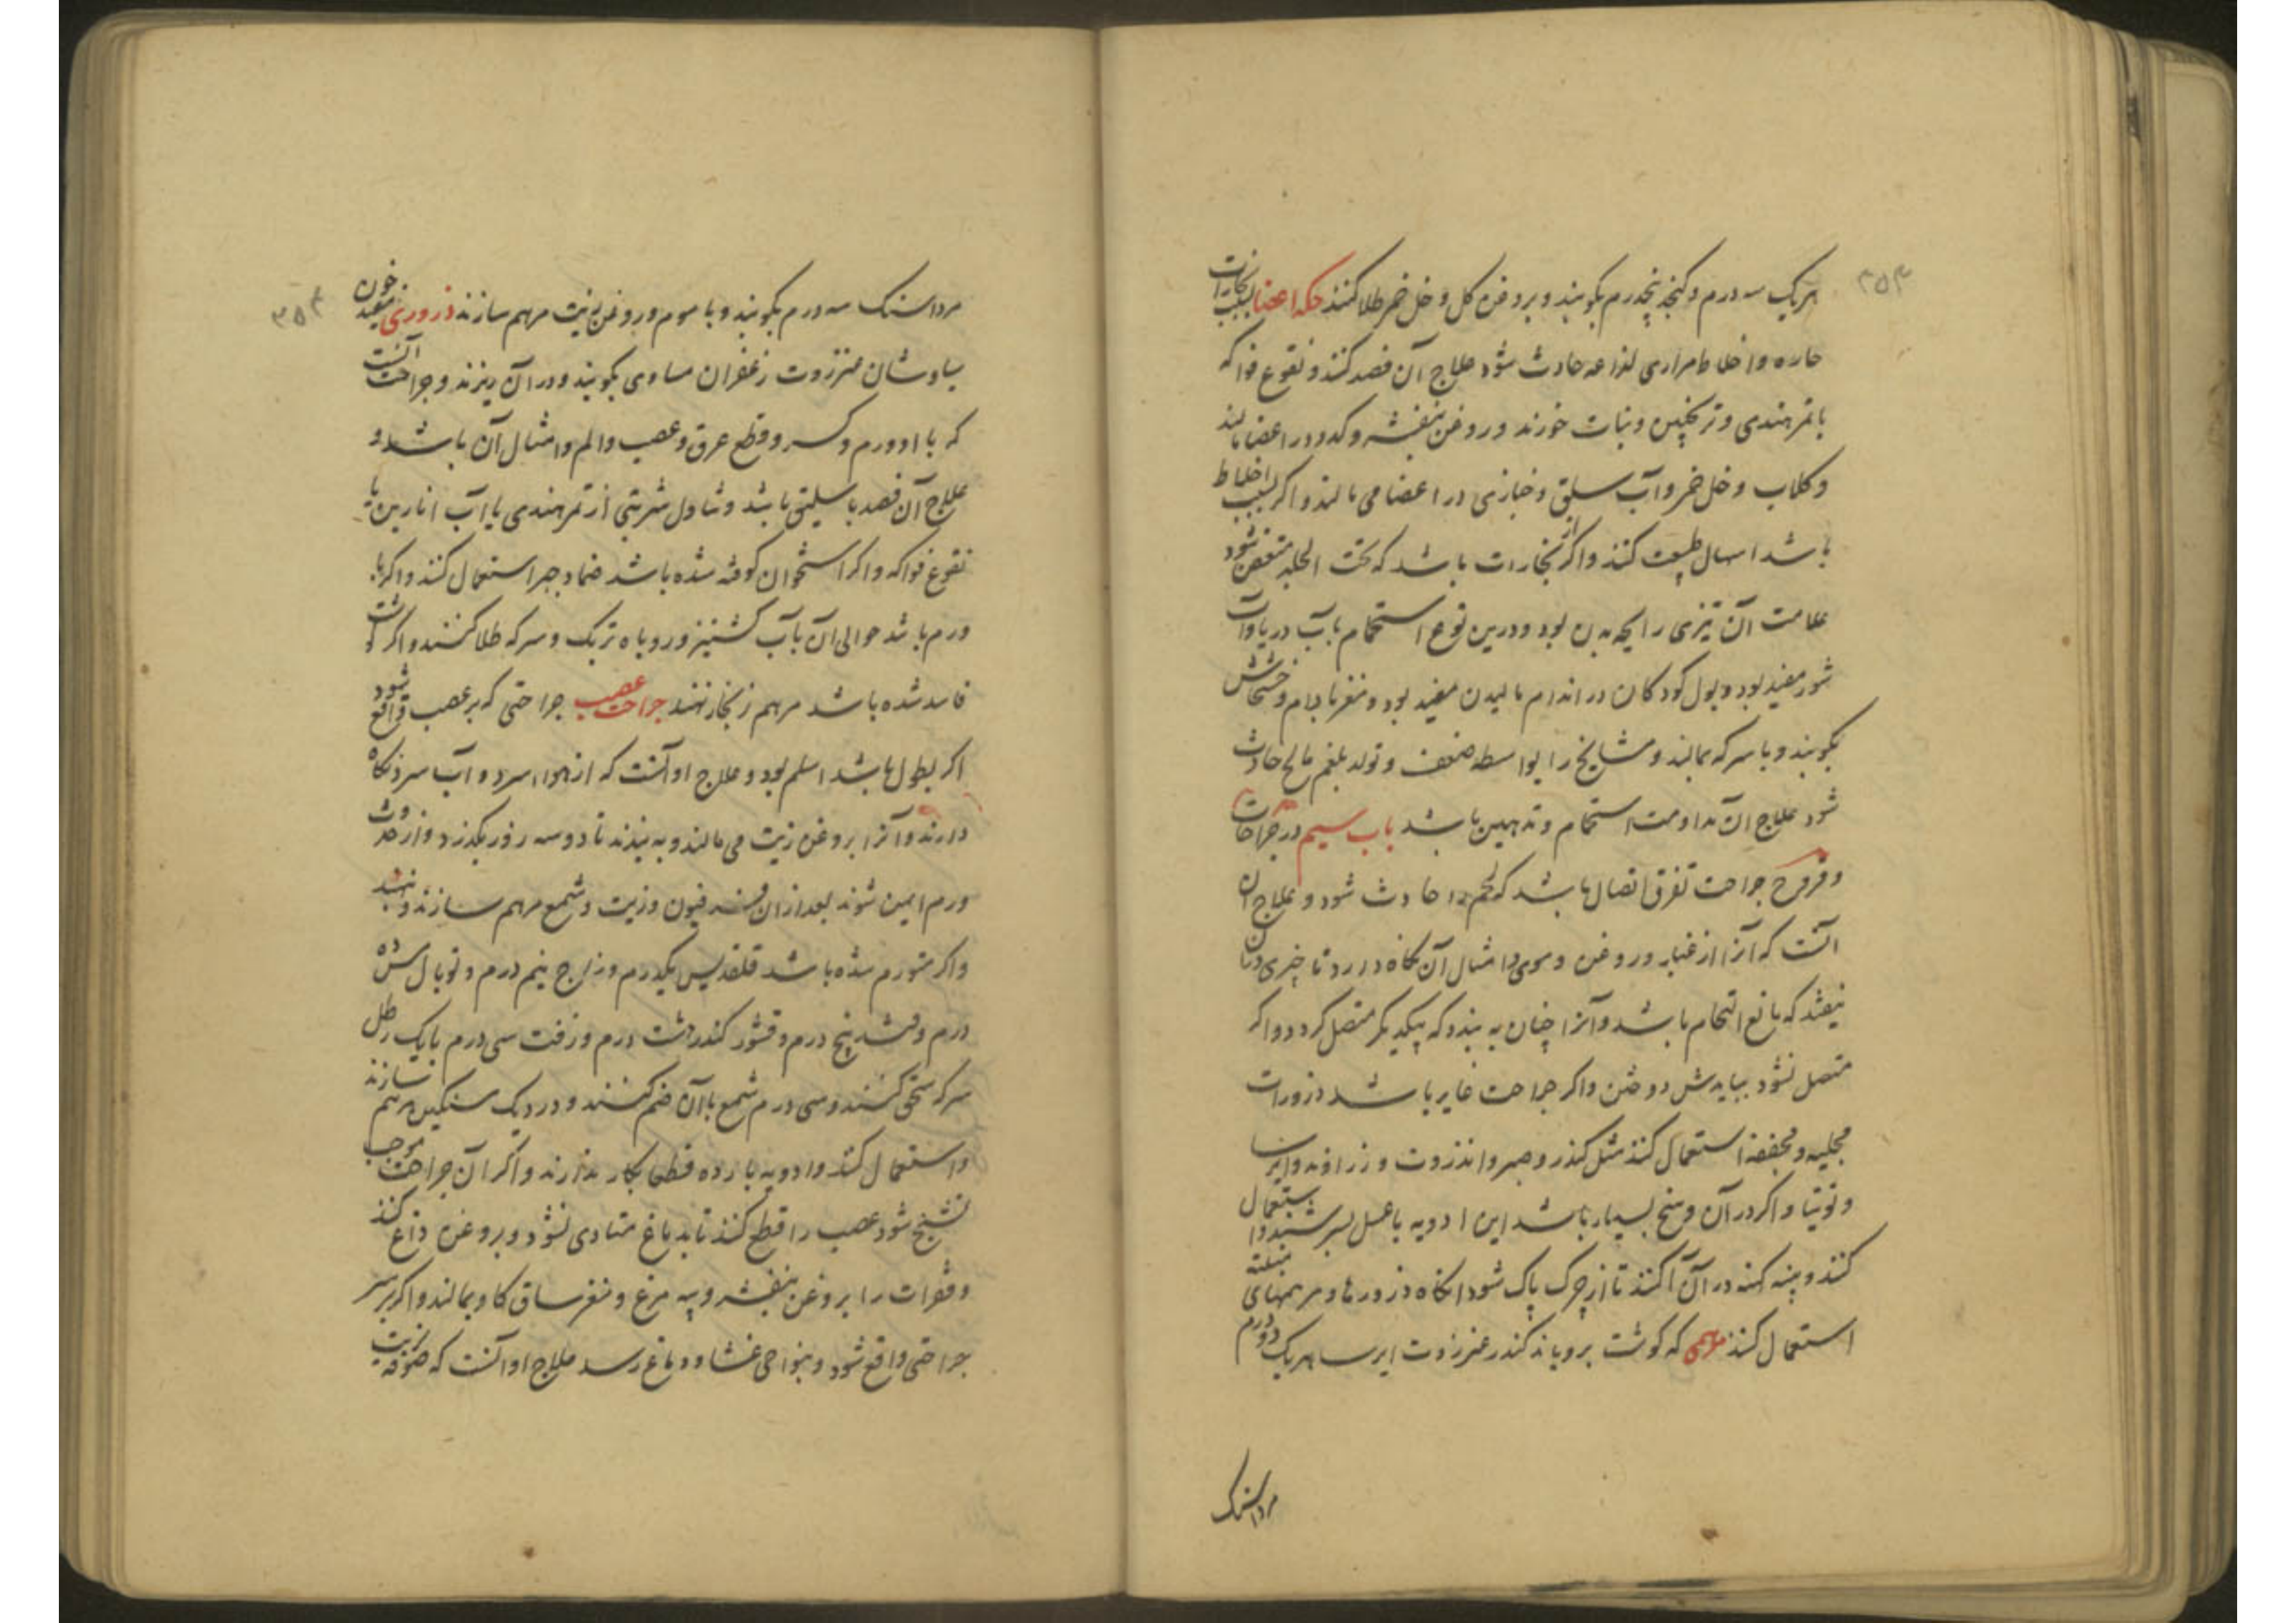 ۳۵۳
هریک سه درم و کنجد پنجدرم بکوبند و بروغن کل و خل خمر طلا کنند حکه اعضا بسبب بخارات
حاره و اخلاط مراری لذاعه حادث شود علاج آن فصد کنند و نقوع فواکه
با تمر هندی و ترنجبین و نبات خورند و روغن بنفشه و کدو در اعضا مالند
و کلاب و خل خمر و آب سلق و خبازی در اعضا می مالند و اکر بسبب اخلاط
باشد اسهال طبیعت کنند و اکر از بخارات باشد که تحت الجلد متعفن شود
علامت آن تیزی رایحه بدن بود و درین نوع استحمام بآب دریا و آب
شور مفید بود و بول کودکان در اندام مالیدن مفید بود و مغز بادام و خشخاش
بکوبند و با سرکه بمالند و مشایخ را بواسطه ضعف و تولد بلغم مالح حادث
شود علاج آن مداومت استحمام و تدهین باشد باب سیم در جراحات
و قروح جراحت تفرق اتصال باشد که لحم را حادث شود و علاج آن
آنست که آنرا از غبار و روغن و موی و امثال آن نکاه دارد تا چیزی در آن
نیفتد که مانع التحام باشد و آنرا چنان به بندد که بیکدیکر متصل کردد و اکر
متصل نشود ببایدش دوختن و اکر جراحت غایر باشد ذرورات
مجلیه و مجففه استعمال کنند مثل کندر و صبر و انذروت و زراوند و ایرسا
و توتیا و اکر در آن وسخ بسیار باشد این ادویه با عسل بسرشند و استعمال
کنند و پنبه کهنه در آن آکنند تا از چرک پاک شود آنکاه ذرورها و مرهمهای منبته
استعمال کنند مرهمی که کوشت برویاند کندر عنزروت ایرسا هریک دو درم
مرداسنک
۳۵۴
مرداسنک سه درم بکوبند و با موم و روغن زیت مرهم سازند ذروری مفید خون
سیاوشان عنزروت زعفران مساوی بکوبند و در آن ریزند و جراحت آنست
که با او ورم و کسر و قطع عرق و عصب و الم و امثال آن باشد و
علاج آن فصد باسلیق باشد و تناول شربتی از تمر هندی یا آب انارین یا
نقوع فواکه و اکر استخوان کوفته شده باشد ضماد جبر استعمال کنند و اکر با
ورم باشد حوالی آن بآب کشنیز و روباه تربک و سرکه طلا کنند و اکر کوشت
فاسد شده باشد مرهم زنجار نهند جراحت عصب جراحتی که بر عصب واقع شود
اکر بطول باشد اسلم بود و علاج او آنست که از هواء سرد و آب سرد نکاه
دارند و آنرا بروغن زیت می مالند و به بندند تا دو سه روز بکذرد و از حدوث
ورم ایمن شوند بعد از آن فرفیون و زیت و شمع مرهم سازند و نهند
و اکر متورم شده باشد قلقدیس یکدرم و زاج نیم درم و توبال مس ده
درم و قنه پنج درم و قشور کندر هشت درم و زفت سی درم با یک رطل
سرکه سحق کنند و سی درم شمع با آن ضم کنند و در دیک سنکین مرهم سازند
و استعمال کنند و ادویه بارده قطعا بکار ندارند و اکر آن جراحت موجب
تشنج شود عصب را قطع کنند تا بدماغ متادی نشود و بروغن داغ کنند
و فقرات را بروغن بنفشه و پیه مرغ و مغز ساق کاو بمالند و اکر بر سر
جراحتی واقع شود و بنواحی غشا و دماغ رسد علاج او آنست که صوفه بزیت